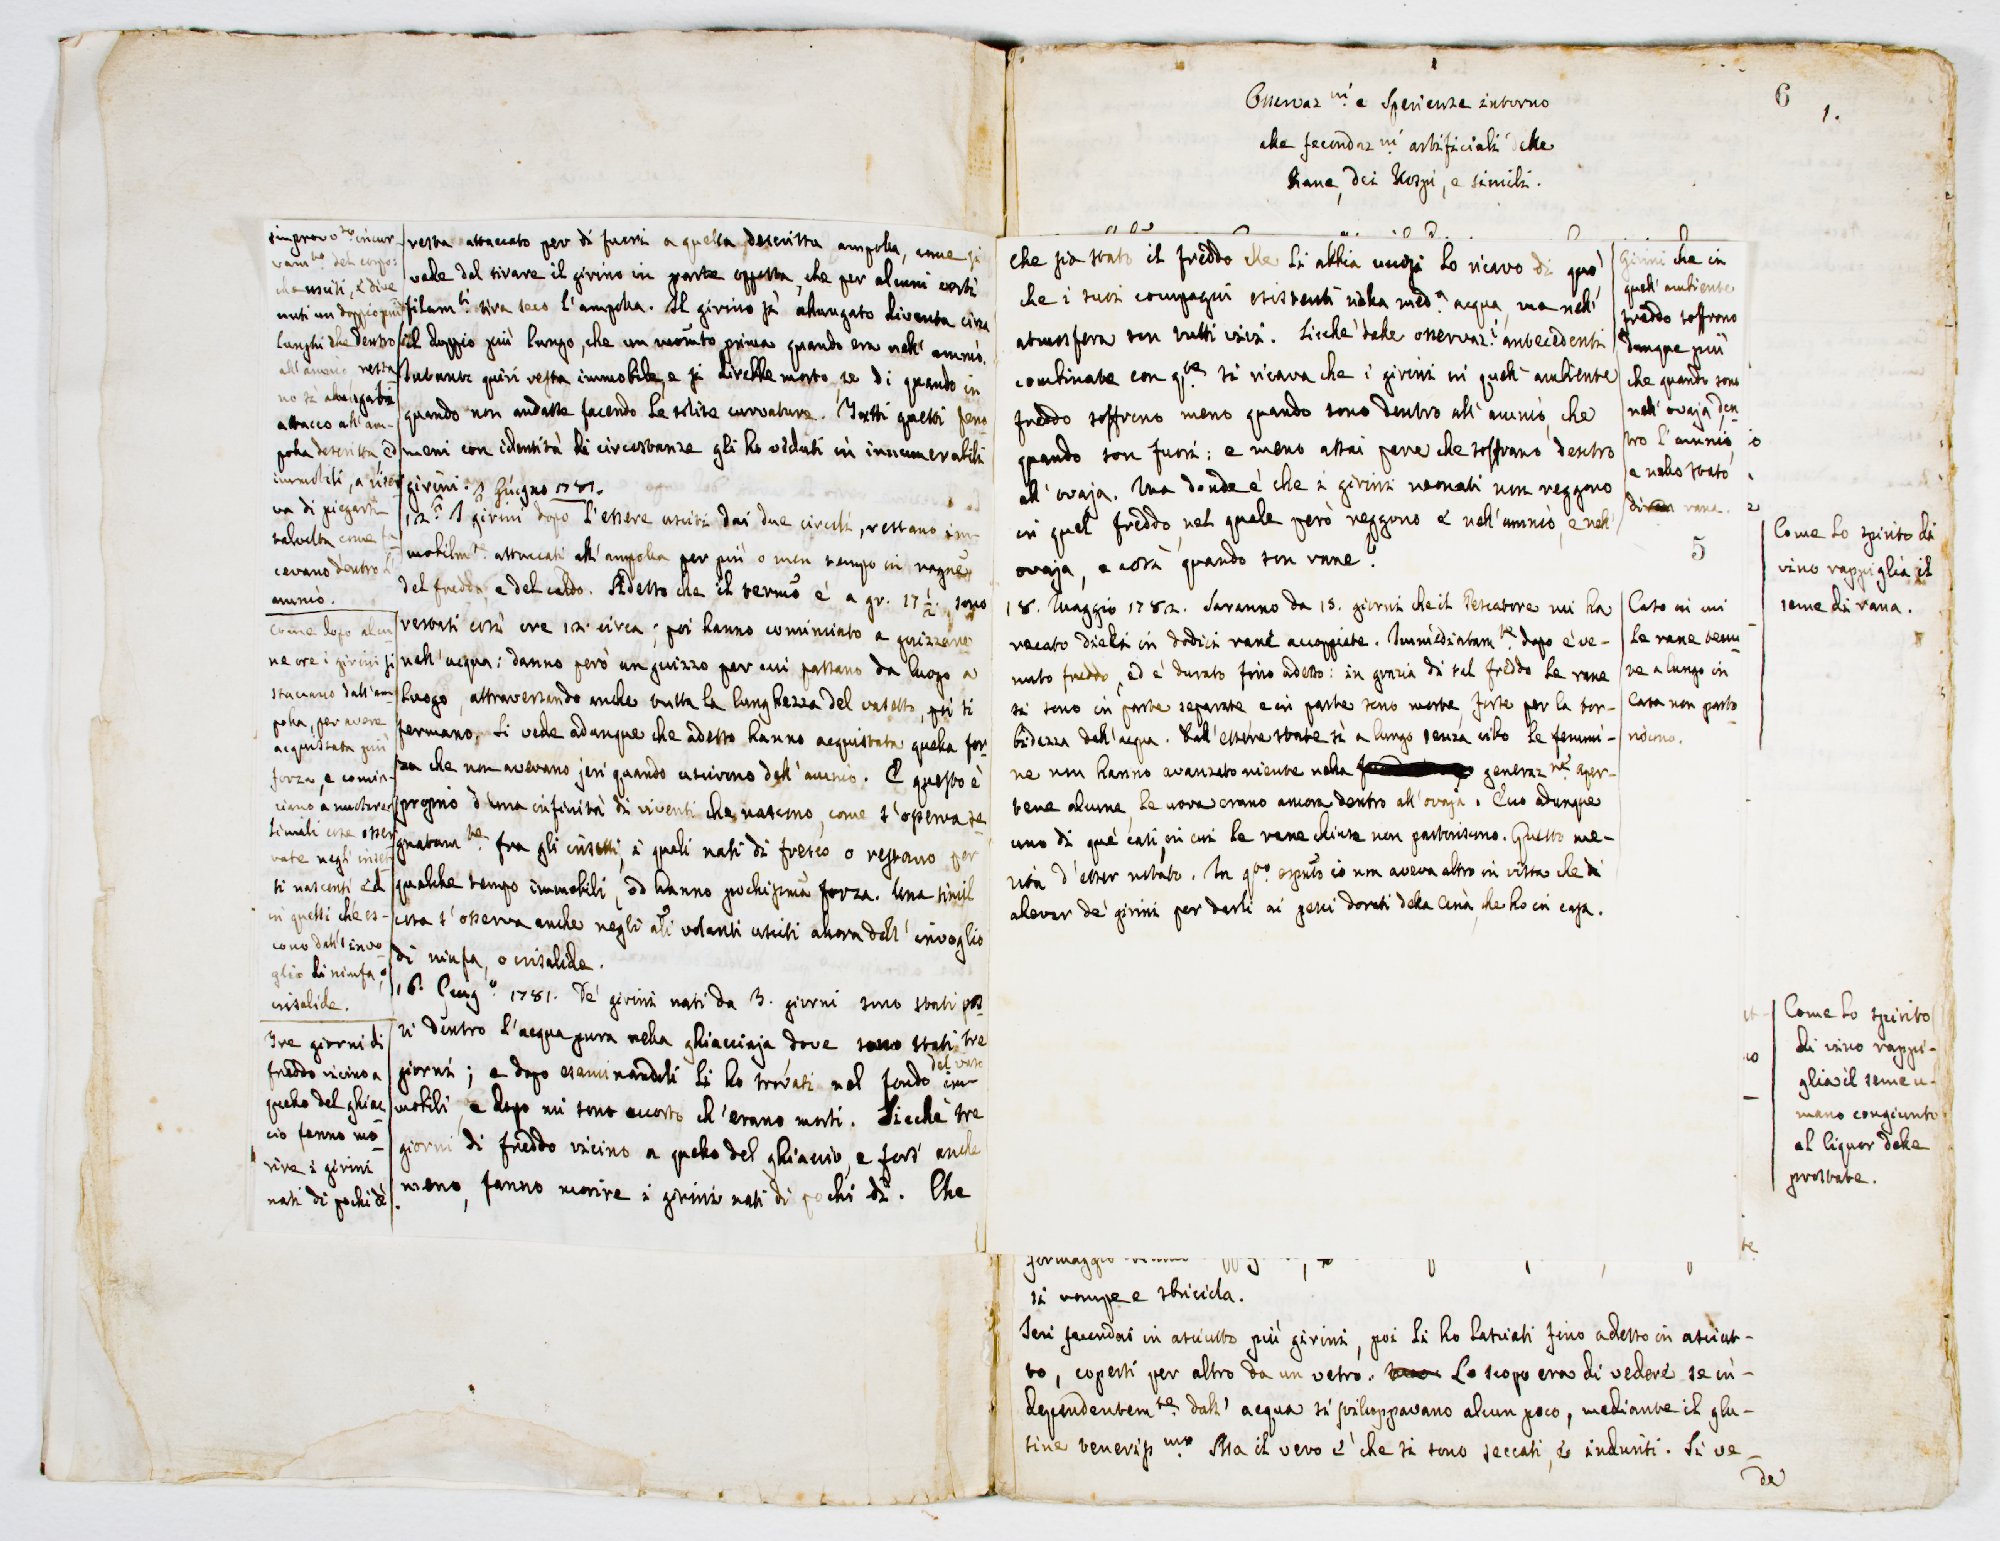 Osservaz.ni e Sperienze intorno
alle fecondaz.ni artificiali delle
Rane, dei Rospi, e simili.
6
1.
incur-
vam.to del corpo.
che usciti, e dive
nuti un doppio più
lunghi che dentro
all'amnio resta
no sì allungati
attacco all'am-
polla descritta ed
immobili, a riser
va di piegarsi
talvolta come fa-
cevano dentro l'
amnio.
Come dopo alcu
ne ore i girini si
staccano dall'am
polla, per avere
acquistata più
forza, e comin-
ciano a nuotare:
simili cose osser
vate negli inset-
ti nascenti ed
in quelli ch'es-
cono dall'invo-
glio di ninfa, o
crisalide.
Tre giorni di
freddo vicino a
quello del ghiac
cio fanno mo-
rire i girini
nati di pochi dì.
resta attaccato per di fuori a quella descritta ampolla, come si
vede dal tirare il girino in parte opposta, che per alcuni corti
filam.ti tira seco l'ampolla. Il girino sì allungato diventa circa
il doppio più lungo, che un momento prima quando era nell'amnio.
Durante quivi resta immobile, e si direbbe morto, se di quando in
quando non andasse facendo le solite curvature. Tutti questi feno-
meni con identità di circostanze gli ho veduti in innumerabili
girini. Giugno 1781.
12. I girini dopo l'essere usciti dai due circoli, restano im-
mobilm.te attaccati all'ampolla per più o men tempo in ragne
del freddo, e del caldo. Adesso che il termo è a gr. 17 1/2. sono
restati così ore 12. circa; poi hanno cominciato a guizzare
nell'acqua: danno però un guizzo per cui passano da luogo a
luogo, attraversando anche tutta la lunghezza del vasetto, poi si
fermano. Si vede adunque che adesso hanno acquistata quella for
za che non avevano jeri quando uscirono dall'amnio. E questo è
proprio d'una infinità di viventi che nascono, come s'osserva se-
gnatam.te fra gli insetti, i quali nati di fresco o restano per
qualche tempo immobili, od hanno pochissima forza. Una simil
cosa s'osserva anche negli ali volanti usciti allora dall'invoglio
di ninfa, o crisalide.
16. Giug.o 1781. De' girini nati da 3. giorni sono stati pos
ti dentro l'acqua pura nella ghiacciaja dove sono stati tre
giorni; e dopo esaminandoli li ho trovati nel fondo del vaso im-
mobili, e dopo mi sono accorto ch'erano morti. Sicchè tre
giorni di freddo vicino a quello del ghiaccio, e fors' anche
meno, fanno morire i girini nati di pochi dì. Che
che sia stato il freddo che li abbia uccisi lo ricavo di quò,
che i suoi compagni esistenti nella med.a acqua, ma nell'
atmosfera son tutti vivi. Sicchè dalle osservaz.i antecedenti
combinate con q.te si ricava che i girini in quell'ambiente
freddo soffrono meno quando sono dentro all'amnio, che
quando son fuori: e meno assai pare che soffrano dentro
all'ovaja. Ma donde è che i girini neonati non reggono
in quel freddo, nel quale però reggono e nell'amnio, e nell'
ovaja, e così quando son rane?
Girini che in
quell'ambiente
freddo soffrono
dunque più
che quando sono
nell'ovaja, den-
tro l'amnio,
e nello stato
di rana.
5
18. Maggio 1782. Saranno da 15. giorni che il Pescatore mi ha
recato dieci in dodici rane accoppiate. Immediatam.te dopo è ve-
nuto freddo, ed è durato fino adesso: in grazia di tal freddo le rane
si sono in parte separate e in parte sono morte, forse per la tor-
bidezza dell'acqua. Dall'essere state sì a lungo senza cibo le femmi-
ne non hanno avanzato niente nella generaz.ne Aper-
tene alcune, le uova erano ancora dentro all'ovaja. Ecco adunque
uno di que' casi, in cui le rane chiuse non partoriscono. Questo me-
rita d'esser notato. In q.to io non aveva altro in vista che di
allevar de' girini per darli ai pesci dorati della Cina, che ho in casa.
Caso in cui
le rane tenu
te a lungo in
casa non parto
riscono.
Come lo spirito di
vino rappiglia il
seme di rana.
Come lo spirito
di vino rappi-
glia il seme u-
mano congiunto
al liquor delle
prostate.
formaggio
si rompe e sbricicla.
Ieri fecondai in asciutto più girini, poi li ho lasciati fino adesso in asciut-
to, coperti per altro da un vetro. Lo scopo era di vedere se in-
dependentem.te dall'acqua si sviluppavano alcun poco, mediante il glu-
tine Ma il vero è che si sono seccati, e induriti. Si ve-
de